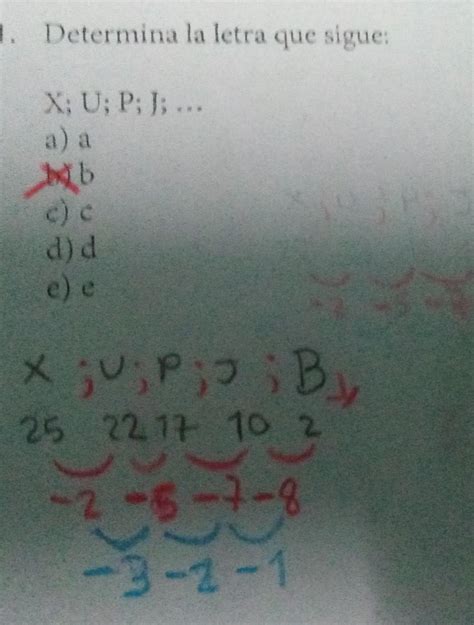 1. Determina la letra que sigue:
X; U; P; J; ...
a) a
b) b
c) c
d) d
e) e
X ; U ; P ; J ; B
25 22 17 10 2
-2 -5 -7 -8
-3 -2 -1